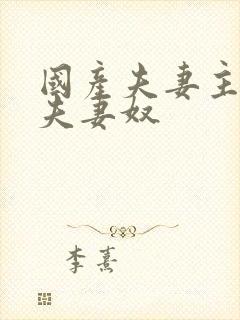 國産夫妻主
夫妻奴
李熹